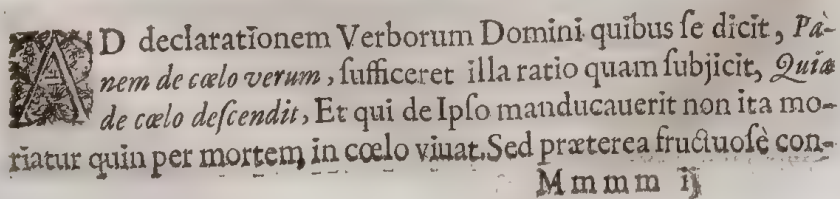 AD declarationem Verborum Domini quibus ſe dicit, Pà-
nem de cœlo verum, ſufficeret illa ratio quam ſubjicit, Quia
de cœlo deſcendit, Et qui de Ipſo manducauerit non ita mo-
riatur quin per mortem in cœlo viuat. Sed præterea fructuoſè con-
Mmmm ij